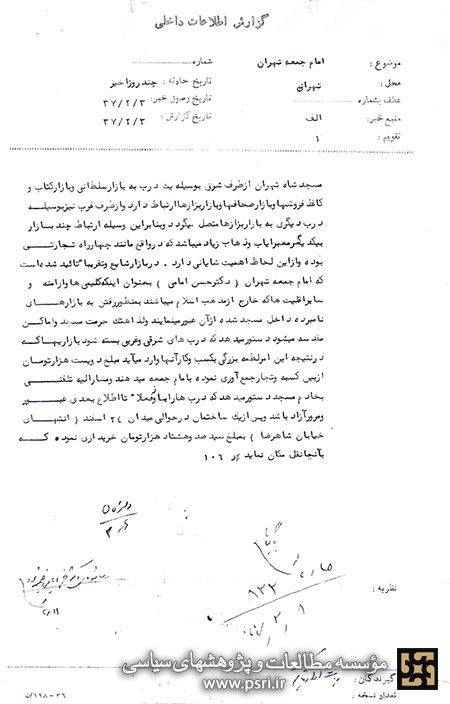 گزارش اطلاعات داخلی
موضوع : امام جمعه تهران شماره
محل : تهران تاریخ حادثه : چند روز اخیر
عطف بشماره تاریخ وصول خبر : ۳۷/۲/۳
منبع خبر : الف تاریخ گزارش : ۳۷/۲/۳
تقویم : ۱
مسجد شاه تهران ازطرف شرق بوسیله یک درب به بازار سلطانی وبازارکتاب و
کاغذ فروشهاوبازارصحافهاوبازاربزازها ارتباط دارد وازطرف غرب نیزبوسیلـــه
درب دیگری به بازاربزازهامتصل میگردد وبنابراین وسیله ارتباط چند بـــازار
بیکدیگرمعبرایاب وذهاب زیاد میباشد که درواقع مانند چهارراه تجارتــی
بوده وازاین لحاظ اهمیت شایانی دارد . دربازارشایع وتقریبا" تائید شده است
که امام جمعه تهران ( دکترحسن امامی ) بعنوان اینکه کلیمی ها وارامنه و
سایراقلیت هاکه خارج ازمذهب اسلام میباشند بمنظوررفتن به بازارهــای
نامبرده داخل مسجد شده ازآن عبورمینمایند ولذا هتک حرمت مسجد واماکن
مقدسه میشود دستورمیدهد که درب های شرقی وغربی بسته شود بازاریهاکــه
درنتیجه این امرلطمه بزرگی بکسب وکارآنهاوارد میآید مبلغ دویست هزارتومان
ازبین کسبه وتجارجمع آوری نموده بامام جمعه میدهند ومشارالیه تلفنــی
بخادم مسجد دستورمیدهد که درب هارابازوفعلا" تااطلاع بعدی عبــور
ومرورآزاد باشد وپس ازیک ساختمان درحوالی میدان ۲۴ اسفند ( انتهــای
خیابان شاهرضا ) بمبلغ سیصد وهشتاد هزارتومان خریداری نموده کــه
بآنجانقل مکان نماید ۱۰۶
نظریه :
۸۲۲
گیرندگان :
تعداد نسخه :
۳۶-۱۲۸
مؤسسه مطالعات و پژوهشهای سیاسی
www.psri.ir